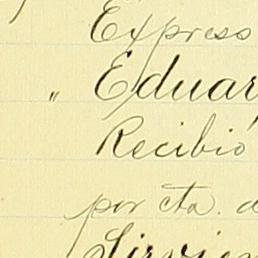 Expreso
" Eduar
Recibió
por cta. d
Sirvien